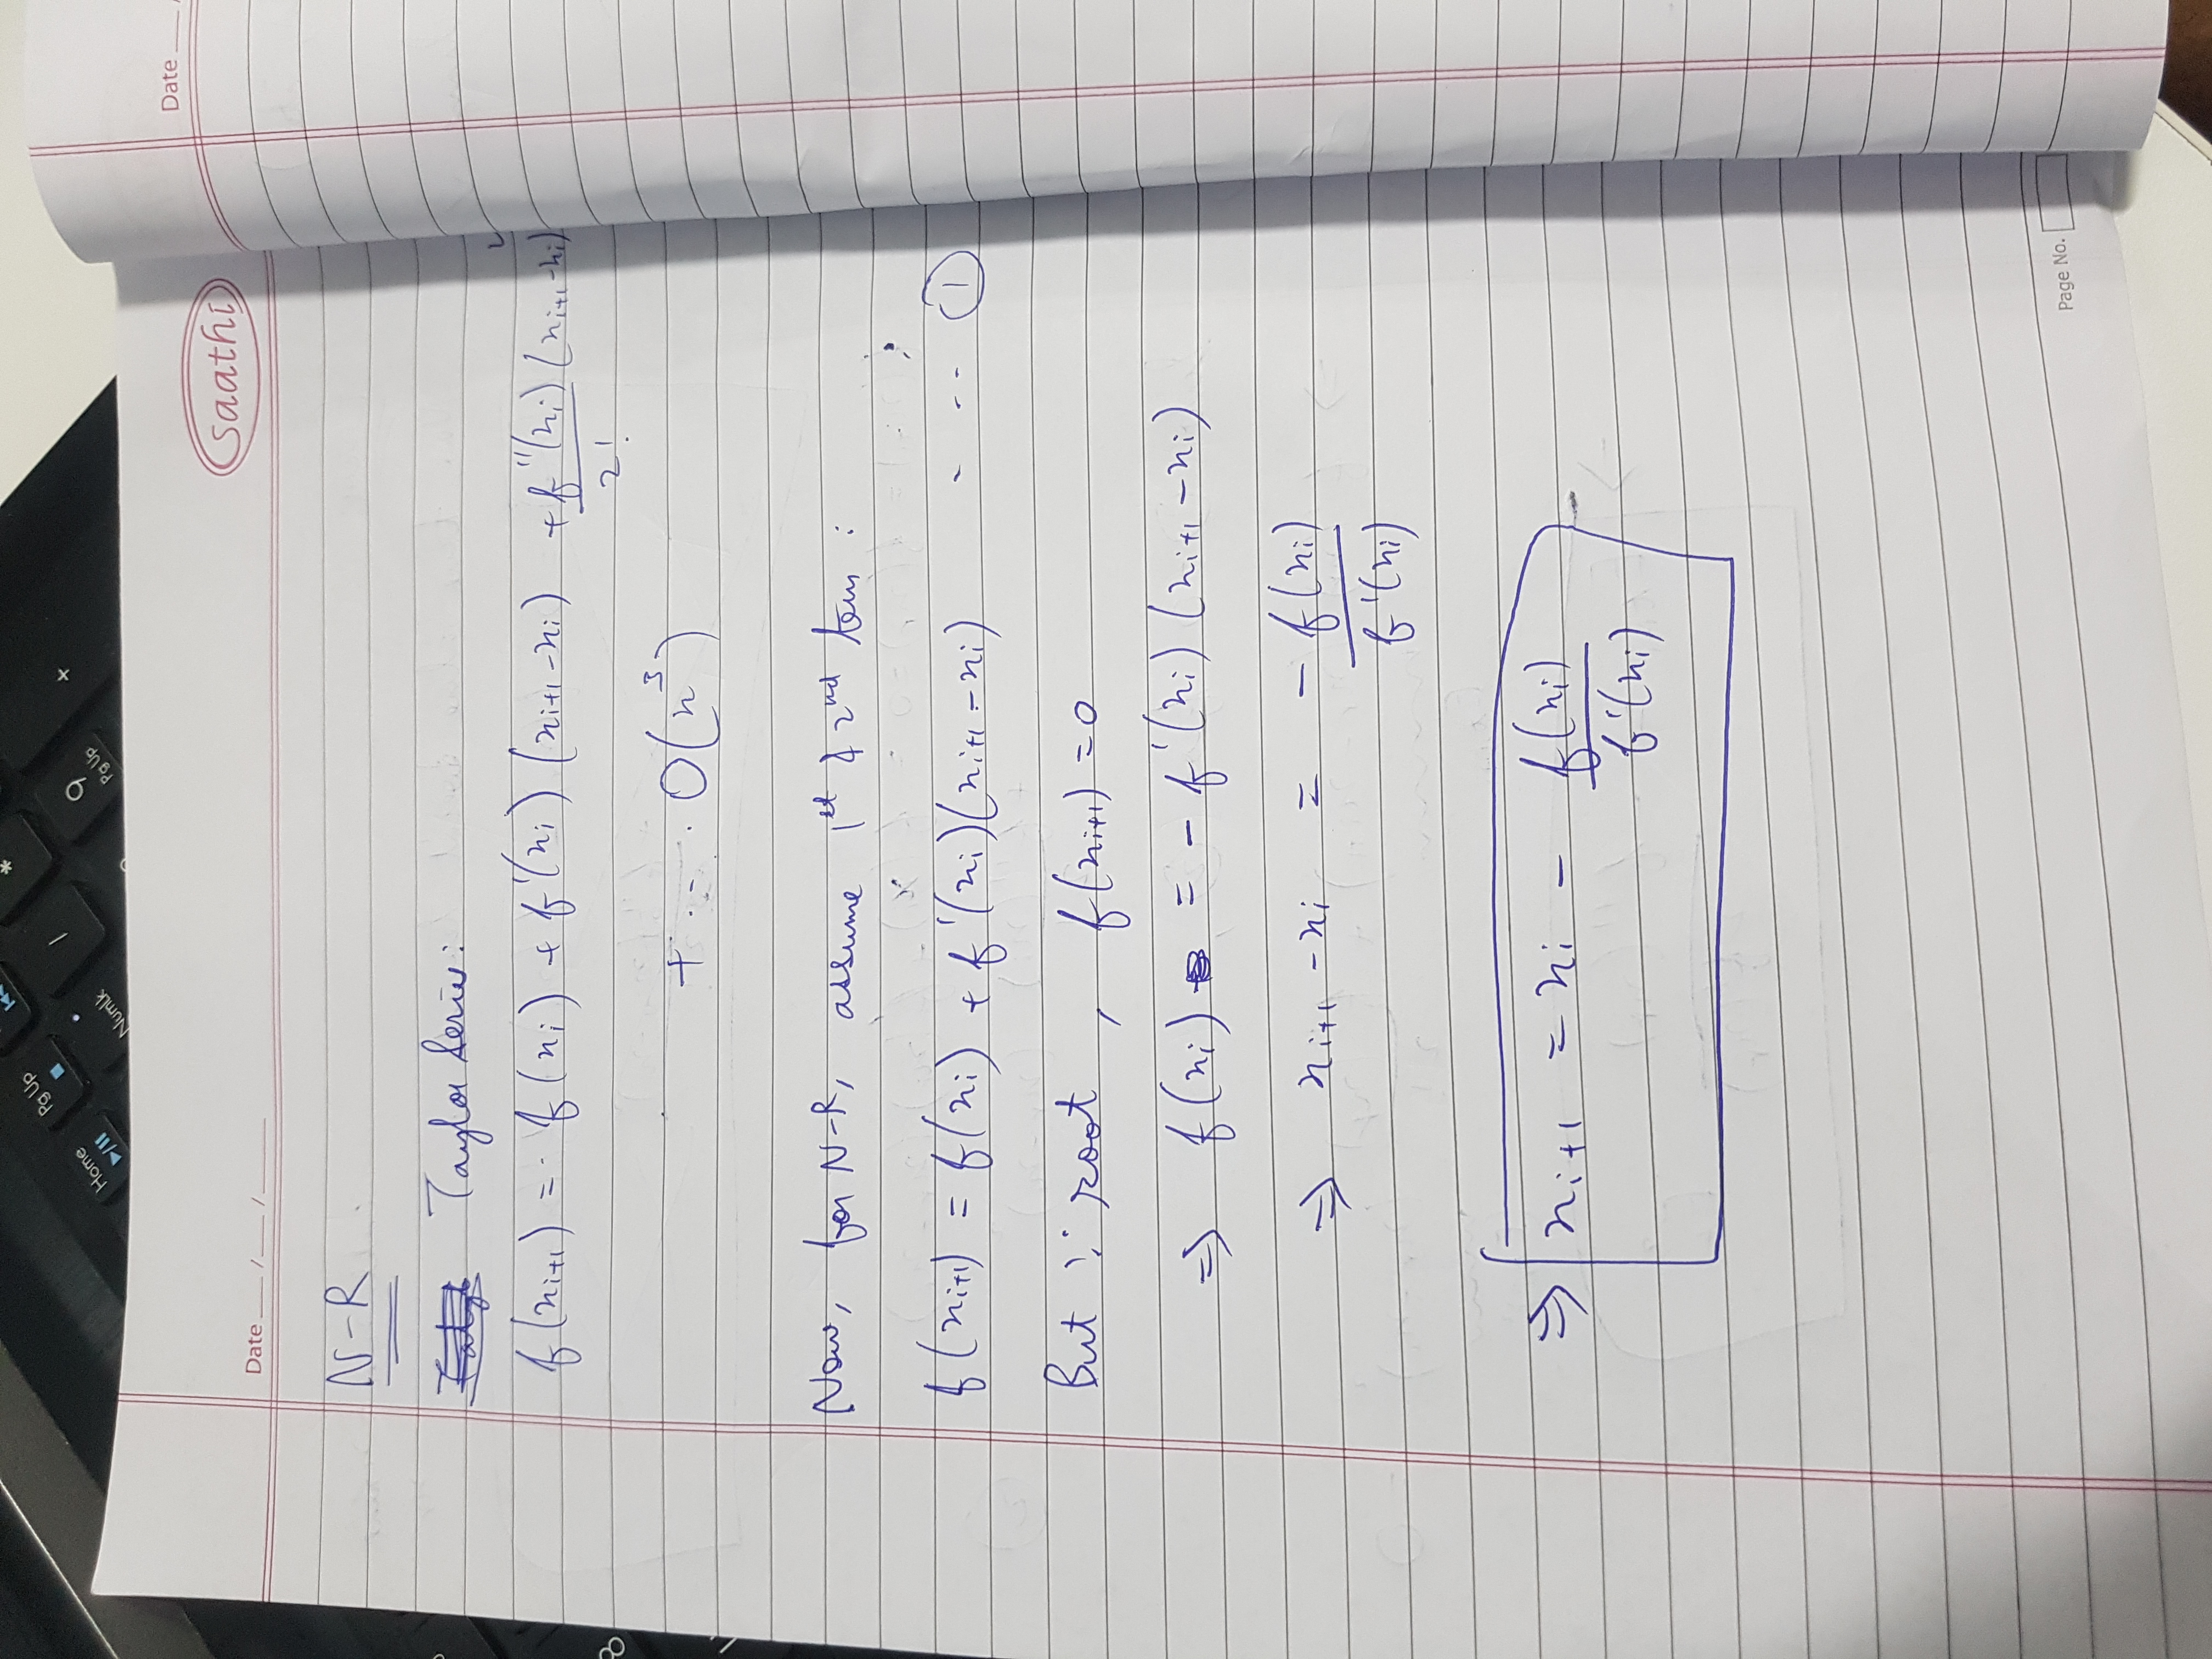 Home
Pg Up
NumLk
/
*
9
Pg Up
+
8
saathi
Date
Date __ / __ / ____
N-R
Taylor Series:
f(x_{i+1}) = f(x_i) + f'(x_i) (x_{i+1} - x_i) + f''(x_i)/2! (x_{i+1} - x_i)^2
+ ... . O(x^3)
Now, for N-R, assume 1st & 2nd term :
f(x_{i+1}) = f(x_i) + f'(x_i)(x_{i+1} - x_i) - -- ①
But ∵ root , f(x_{i+1}) = 0
⇒ f(x_i) = - f'(x_i) (x_{i+1} - x_i)
⇒ x_{i+1} - x_i = - f(x_i)/f'(x_i)
⇒ x_{i+1} = x_i - f(x_i)/f'(x_i)
Page No.